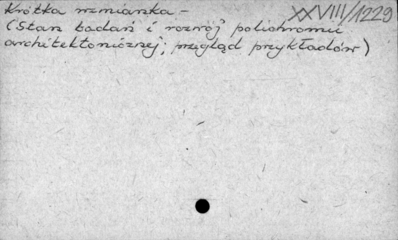 Krótka wzmianka –
XXVIII/1229
(Stan badań i rozwój polichromii
architektonicznej; przegląd przykładów)